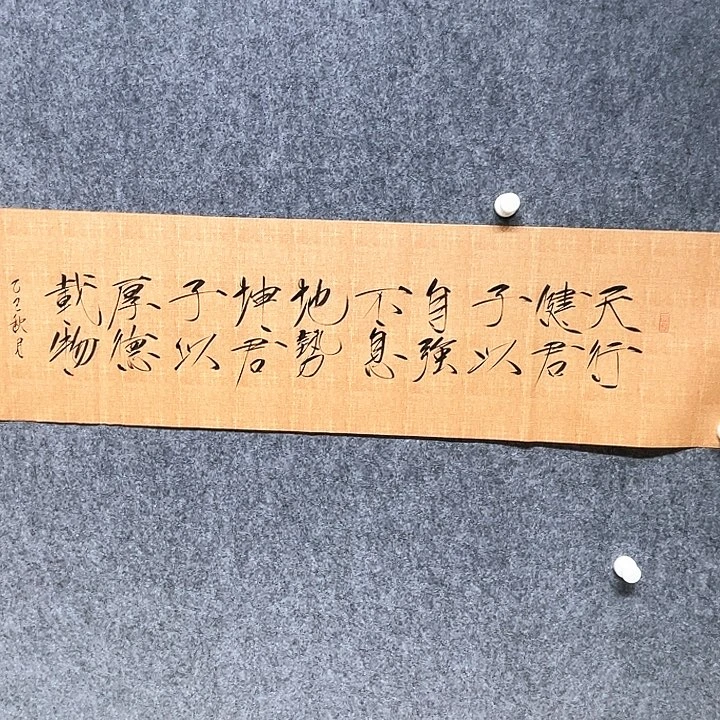 天行
健君
子以
自強
不息
地勢
坤君
子以
厚德
載物
乙巳秋月